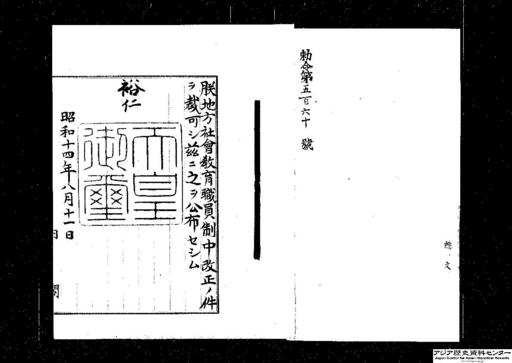 勅令第五百六十號
總、文
朕地方社會教育職員制中改正ノ件
ヲ裁可シ茲ニ之ヲ公布セシム
裕仁
天皇御璽
昭和十四年八月十一日
アジア歴史資料センター
Japan Center for Asian Historical Records